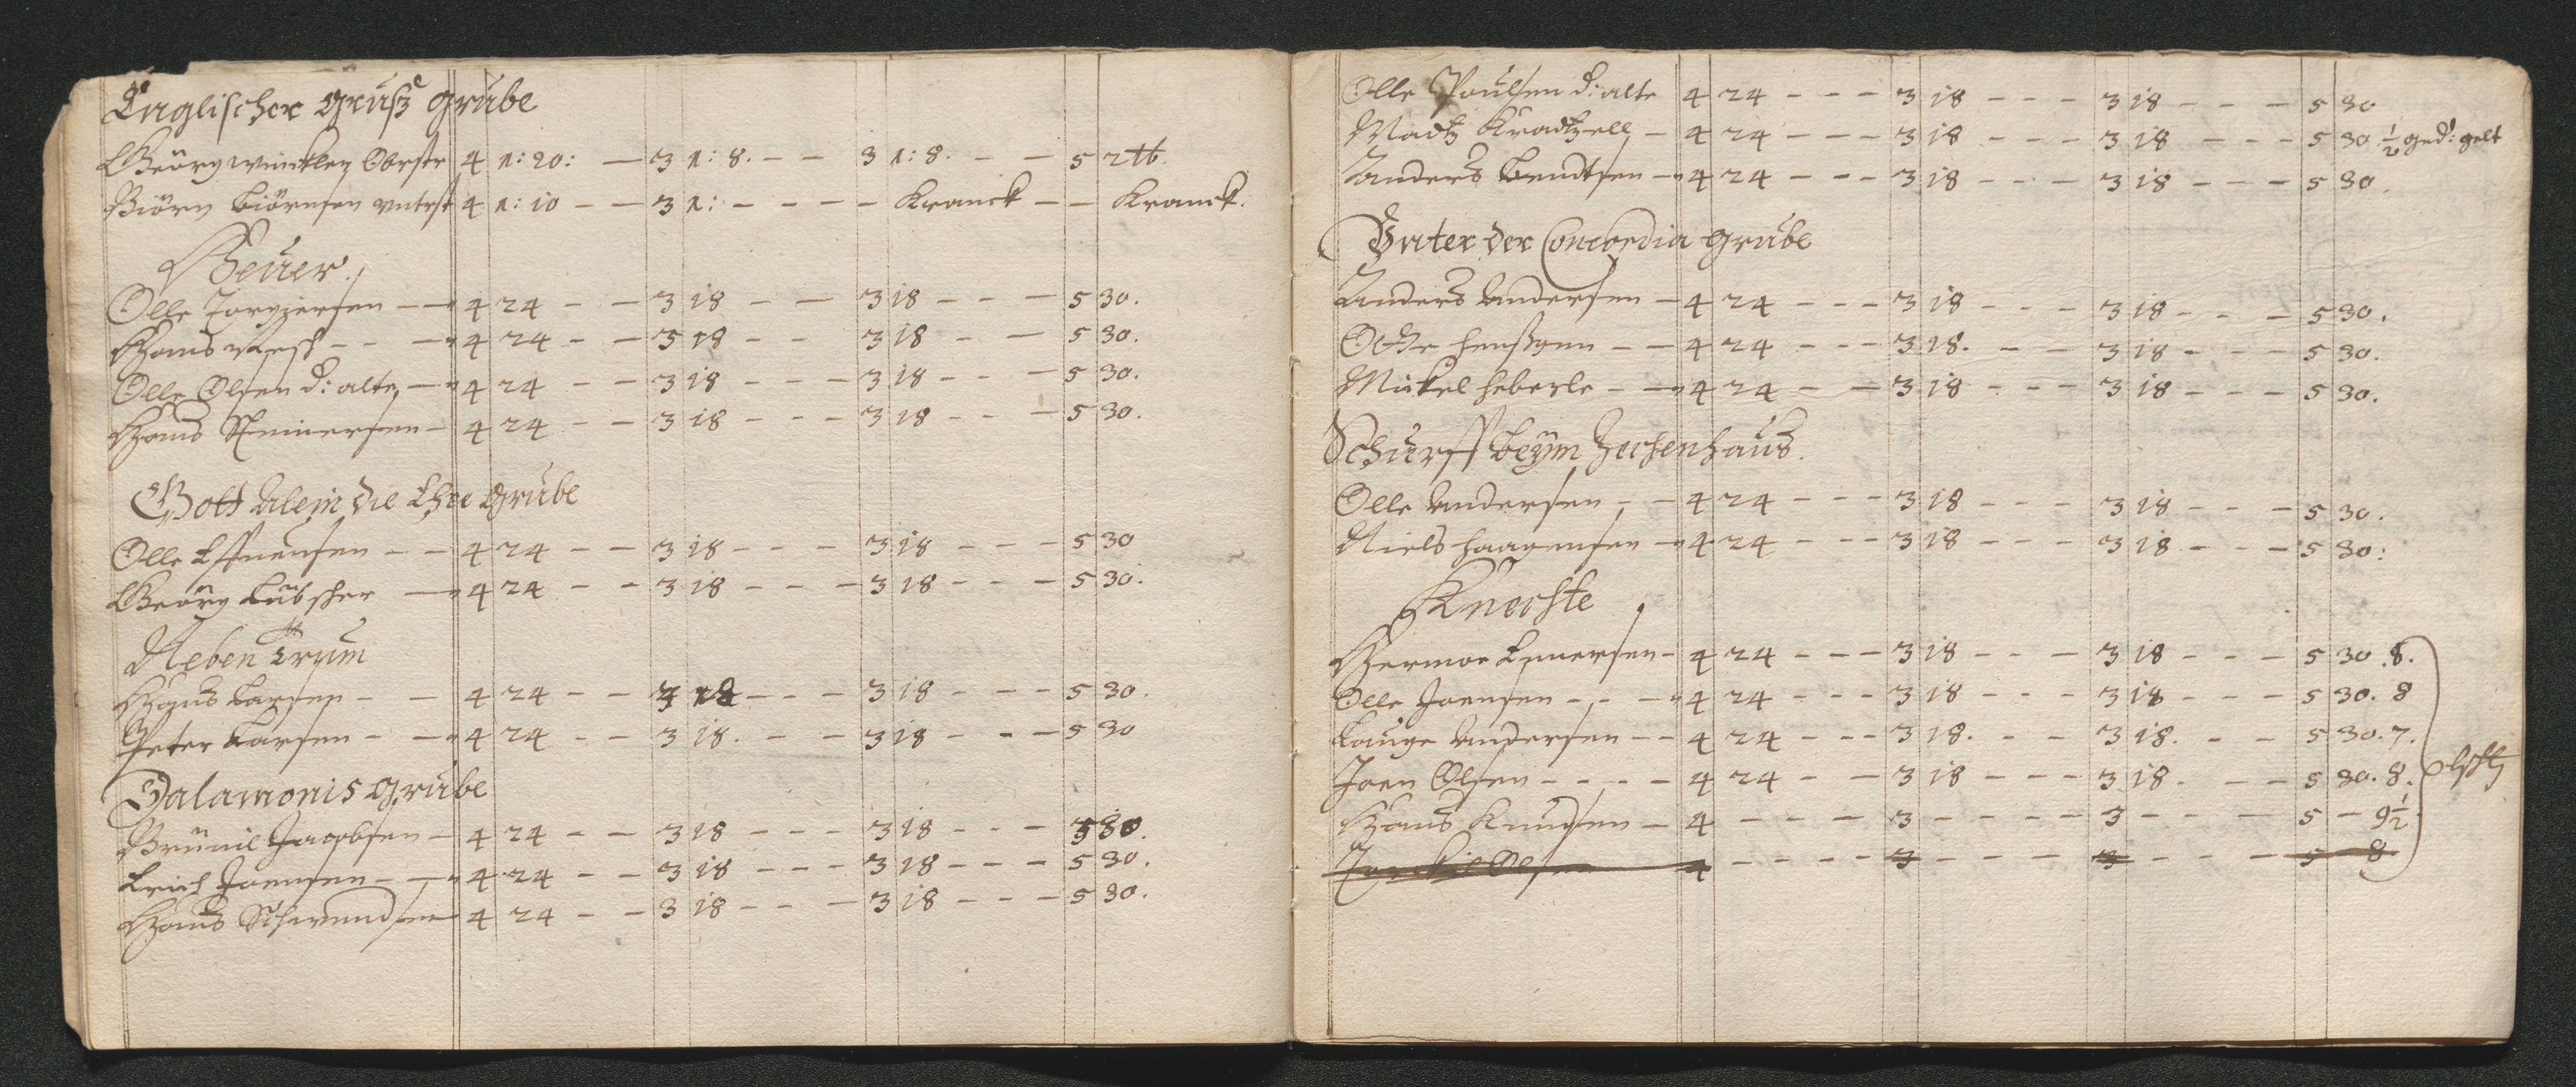 Englischer Gruß grube
Georg Winkler Obrstr 4 1: 20: — 3 1: 8. – – 3 1: 8. – – 5 2 tb.
Biörn Biörnsen vntrst 4 1: 10 – – 3 1: – – – – Kranck – – Kranck.
Heuer.
Olle Torgiersen – – 4 24 – – 3 18 – – 3 18 – – – 5 30.
Hans – – – 4 24 – – 3 18 – – 3 18 – – 5 30.
Olle Olsen d: alte, – 4 24 – – 3 18 – – – 3 18 – – – 5 30.
Hans Steinersen – 4 24 – – 3 18 – – – 3 18 – – – 5 30.
Gott Alein die Ehre Grube
Olle – – 4 24 – – 3 18 – – – 3 18 – – – 5 30
Georg Lübscher — 4 24 – – 3 18 – – – 3 18 – – – 5 30.
Neben Trum
Hans Larsen – – 4 24 – – 3 18 – – – 3 18 – – – 5 30.
Peter Larsen – – 4 24 – – 3 18. – – 3 18 – – – 5 30
Salamonis Grube
Brünil Jacobsen – 4 24 – – 3 18 – – – 3 18 – – – 5 30.
Erich Joensen – – 4 24 – – 3 18 – – – 3 18 – – – 5 30.
Hans 4 24 – – 3 18 – – – 3 18 – – – 5 30.
Olle Poulsen d: alte 4 24 – – – 3 18 – – – 3 18 – – – 5 30
Madtz Kradtzell – 4 24 – – – 3 18 – – – 3 18 – – – 5 30 ½ ged: gelt
Anders Bendtsen – 4 24 – – – 3 18 – – – 3 18 – – – 5 30.
Vnter der Concordia grube
Anders Andersen – 4 24 – – – 3 18 – – – 3 18 – – – 5 30.
– – 4 24 – – – 3 18. – – 3 18 – – – 5 30.
Mickel Heberle – – 4 24 – – 3 18 – – – 3 18 – – – 5 30.
Schurff beym Zechenhaus.
Olle Andersen – – 4 24 – – – 3 18 – – – 3 18 – – – 5 30.
Niels Haagensen – 4 24 – – – 3 18 – – – 3 18 – – – 5 30:
Knechte
Hermoe – 4 24 – – – 3 18 – – – 3 18 – – – 5 30. 8.
Olle Joensen – – – 4 24 – – – 3 18 – – – 3 18 – – – 5 30. 8
Lauge Andersen – – 4 24 – – – 3 18. – – 3 18. – – 5 30. 7.
Joen Olsen – – – – 4 24 – – 3 18 – – – 3 18. – – – 5 30. 8.
Hans Knudsen – 4 – – – – 3 – – – – 3 – – – – 5 – 9½
Olsen 4 – – – – 3 – – – – 3 – – – – 5 8